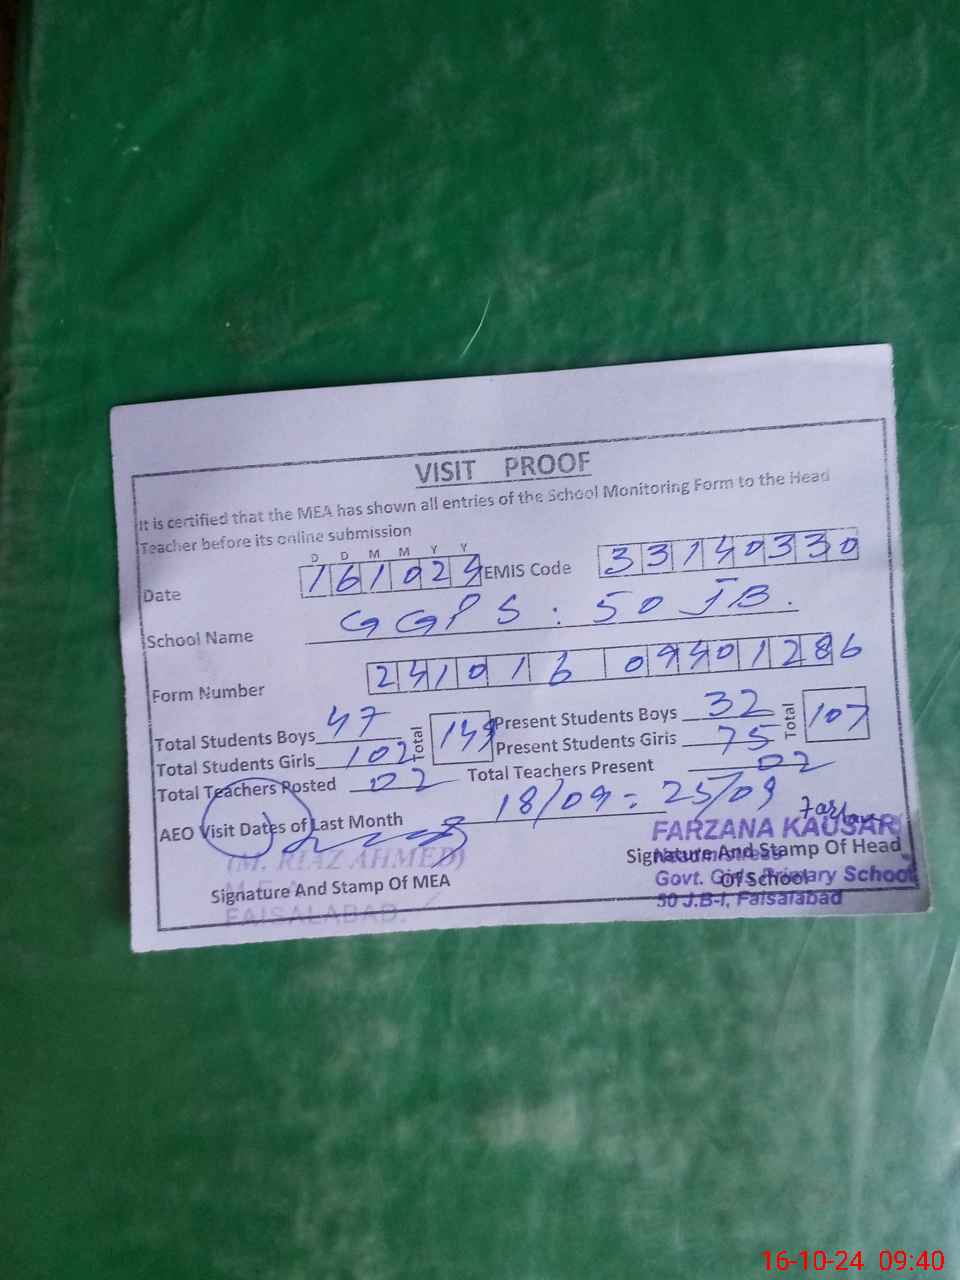 VISIT PROOF
It is certified that the MEA has shown all entries of the School Monitoring Form to the Head
Teacher before its online submission
D D M M Y Y
Date 161024 EMIS Code 33140330
School Name GGPS : 50 JB.
Form Number 241016 094401286
Total Students Boys 47 Total 149 Present Students Boys 32 Total 107
Total Students Girls 102 Present Students Girls 75
Total Teachers Posted 02 Total Teachers Present 02
AEO Visit Dates of Last Month 18/09 = 25/09
(M. RIAZ AHMED) FARZANA KAUSAR
Signature And Stamp Of MEA Signature And Stamp Of Head
Of School
Headmistress
Govt. Girls Primary School
50 J.B-I, Faisalabad
FAISALABAD.
16-10-24 09:40